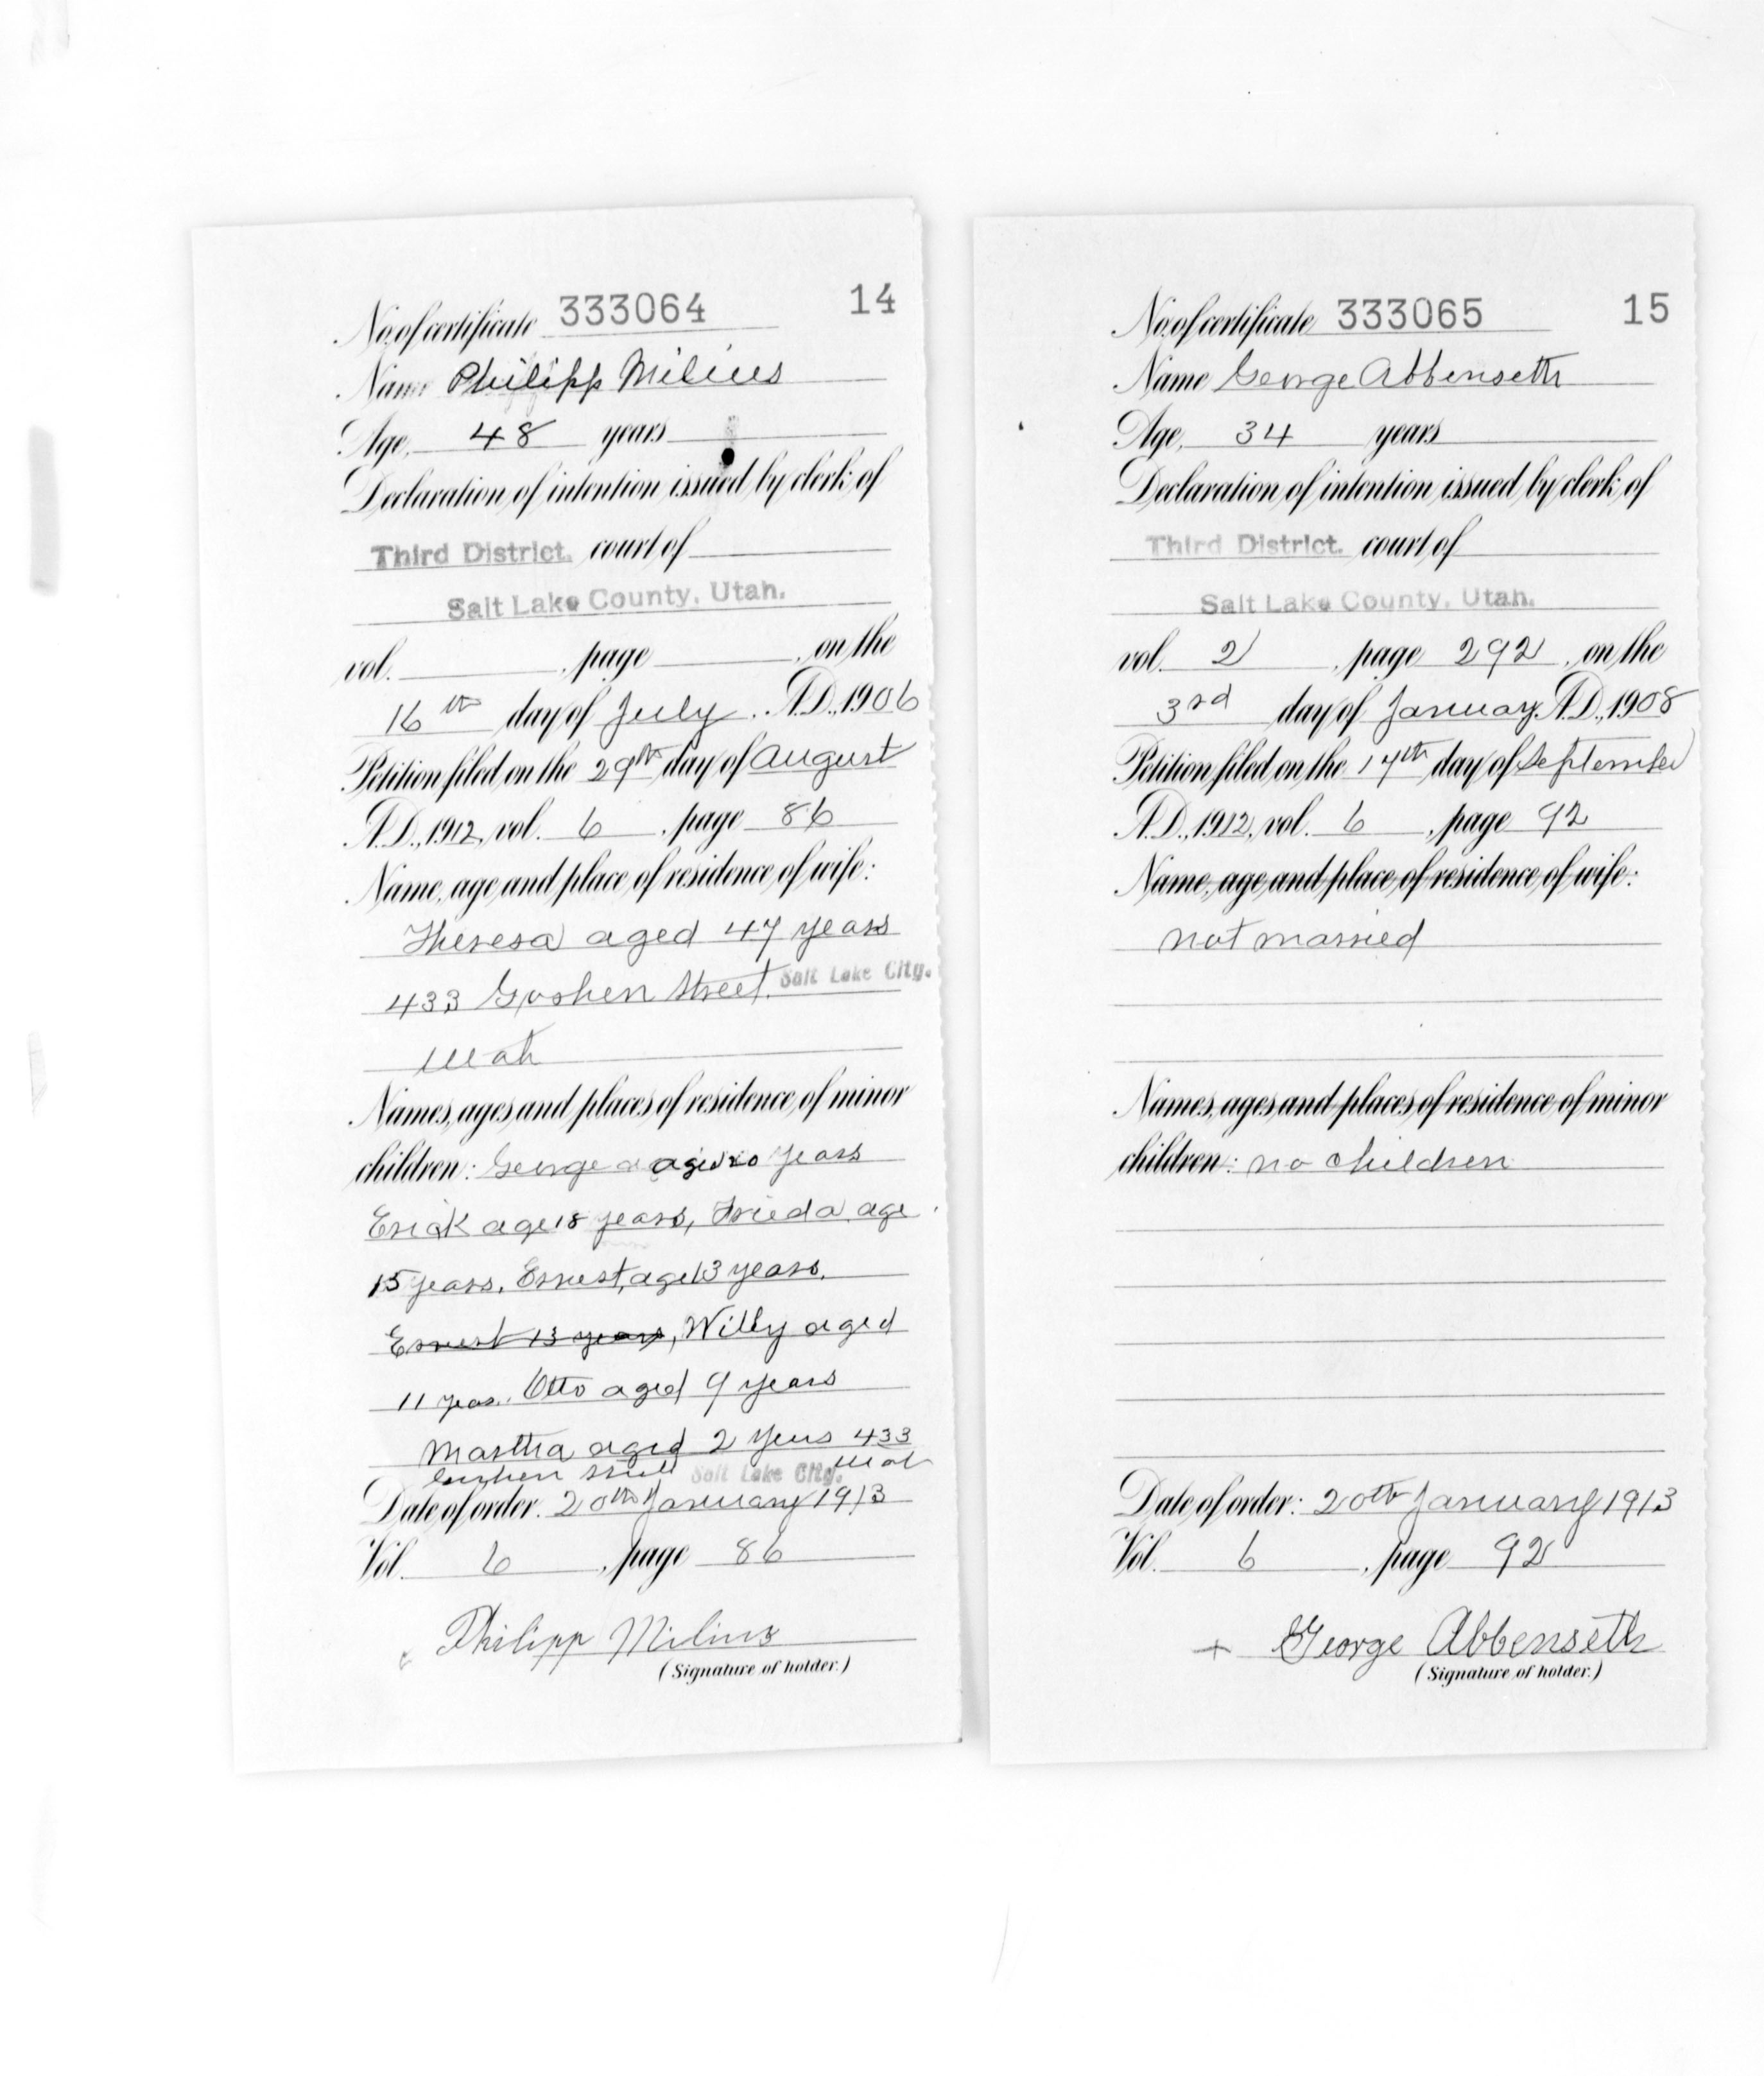 No. of certificate 333064 14
Name Philipp Milius
Age, 48 years
Declaration of intention issued by clerk of
Third District. court of
Salt Lake County, Utah.
vol. , page , on the
16th day of July, A.D., 1906
Petition filed on the 29th day of August
A.D., 1912, vol. 6, page 86
Name, age and place of residence of wife:
Theresa aged 47 years
433 Goshen Street. Salt Lake City.
Utah
Names, ages and places of residence of minor
children: George a aged 20 years
Erick age 18 years, Frieda age
15 years. Ernest, age 13 years.
Ernest 13 years, Willy aged
11 years. Otto aged 9 years
Martha aged 2 years 433
Goshen Street Salt Lake City. Utah
Date of order. 20th January 1913
Vol. 6, page 86
Philipp Milius
(Signature of holder.)
No. of certificate 333065 15
Name George Abbenseth
Age, 34 years
Declaration of intention issued by clerk of
Third District. court of
Salt Lake County, Utah.
vol. 2, page 292, on the
3rd day of January A.D., 1908
Petition filed on the 17th day of September
A.D., 1912, vol. 6, page 92
Name, age and place of residence of wife:
not married
Names, ages and places of residence of minor
children: no children
Date of order: 20th January 1913
Vol. 6, page 92
+ George Abbenseth
(Signature of holder.)